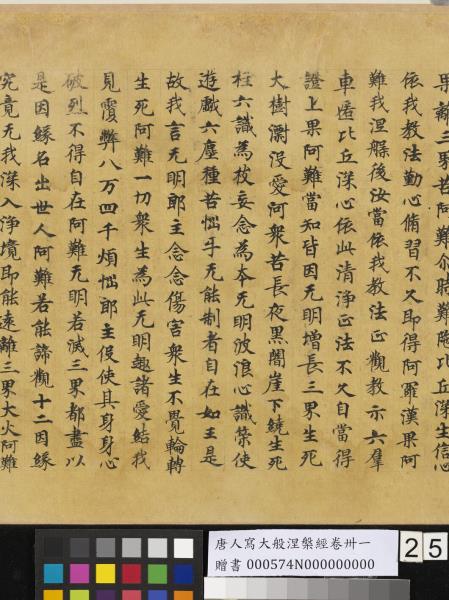 果離三界苦阿難尒時難陁比丘深生信心
依我教法勤心脩習不久即得阿羅漢果阿
難我涅槃後汝當依我教法正觀教示六羣
車匿比丘深心依此清淨正法不久自當得
證上果阿難當知皆因无明增長三界生死
大樹漂没愛河衆苦長夜黑闇崖下繞生死
柱六識為枝妄念為本无明波浪心識策使
遊戲六塵種苦惱牙无能制者自在如王是
故我言无明郎主念念傷害衆生不覺輪轉
生死阿難一切衆生為此无明趣諸愛結我
見覆弊八万四千煩惱郎主侵使其身身心
破烈不得自在阿難无明若滅三界都盡以
是因緣名出世人阿難若能諦觀十二因緣
究竟无我深入淨境即能遠離三界大火阿難
唐人寫大般涅槃經卷卅一
贈書 000574N000000000
25